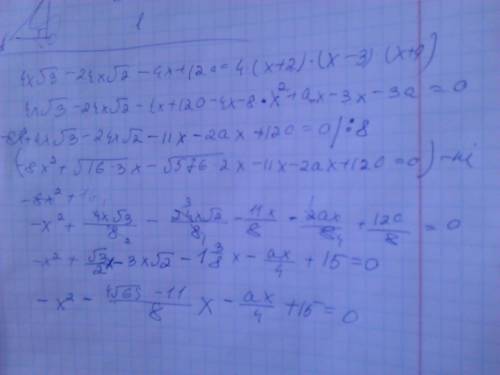 1
4x√3 - 24x√2 - 4x + 120 = 4·(x+2)·(x-3)
4x√3 - 24x√2 - x + 120 - 4x - 8 · x² + ax - 3x - 3a = 0
4x√3 - 24x√2 - 11x - 2ax + 120 = 0 / : 8
(8x² + √16·3x - √576·2x - 11x - 2ax + 120 = 0)
-8x² +
-x² + 4x√3/8 - 24x√2/8 - 11x/8 - 2ax/8 + 120/8 = 0
-x² + √3/2 x - 3x√2 - 1 3/8 x - ax/4 + 15 = 0
-x² - -11/8 x - ax/4 + 15 = 0